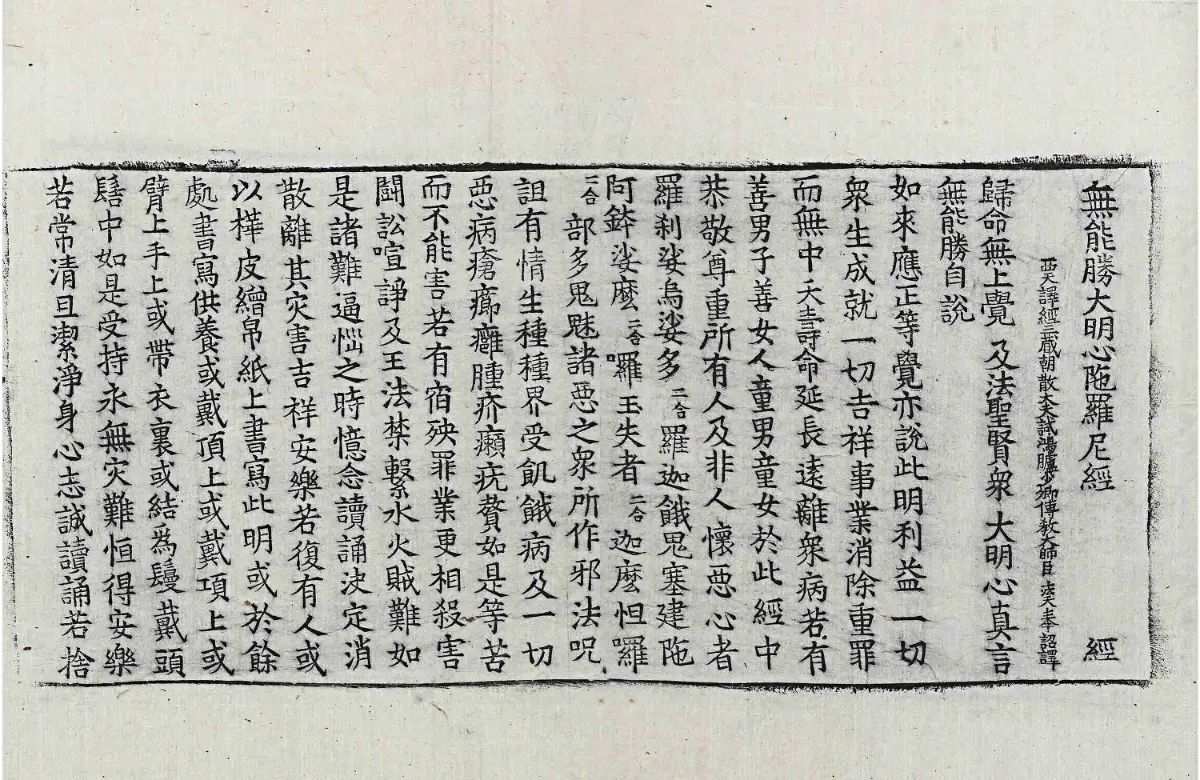 無能勝大明心陁羅尼經 經
西天譯經三藏朝散大夫試鴻臚少卿傳教大師臣法天奉 詔譯
歸命無上覺 及法聖賢衆 大明心真言
無能勝自說
如來應正等覺亦說此明利益一切
衆生成就一切吉祥事業消除重罪
而無中夭壽命延長遠離衆病若有
善男子善女人童男童女於此經中
恭敬尊重所有人及非人懷惡心者
羅刹娑烏娑多二合羅迦餓鬼塞建陁
阿鉢娑麼二合囉玉失者二合迦麼怛羅
二合部多鬼魅諸惡之衆所作邪法呪
詛有情生種種界受飢餓病及一切
惡病瘡癤癰腫疥癩疣贅如是等苦
而不能害若有宿殃罪業更相殺害
鬪訟喧諍及王法禁繫水火賊難如
是諸難逼惱之時憶念讀誦決定消
散離其灾害吉祥安樂若復有人或
以樺皮繒帛紙上書寫此明或於餘
處書寫供養或戴頂上或戴項上或
臂上手上或帶衣裏或結爲鬘戴頭
髻中如是受持永無灾難恒得安樂
若常清旦潔淨身心志誠讀誦若捨